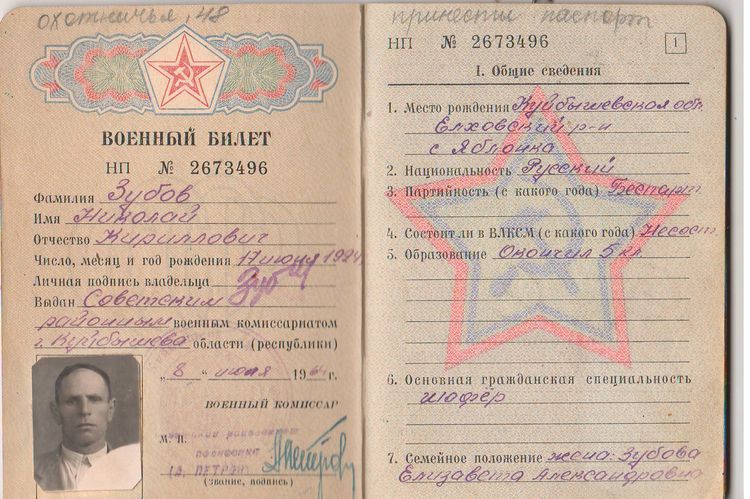 охотничья, 48
ВОЕННЫЙ БИЛЕТ
НП № 2673496
Фамилия Зубов
Имя Николай
Отчество Кириллович
Число, месяц и год рождения 17 июня 1924
Личная подпись владельца Зуб
Выдан Советским
районным военным комиссариатом
г. Куйбышева области (республики)
„8" июля 196 г.
ВОЕННЫЙ КОМИССАР
М. П.
подполковник
(А. ПЕТРОВ) Петров
(звание, подпись)
принести паспорт
НП № 2673496 1
1. Общие сведения
1. Место рождения Куйбышевская обл
Елховский р-н
с Яблонка
2. Национальность Русский
3. Партийность (с какого года) Беспарт.
4. Состоит ли в ВЛКСМ (с какого года) Несост.
5. Образование Окончил 5 кл
6. Основная гражданская специальность
шофёр
7. Семейное положение жена: Зубова
Елизавета Александровна